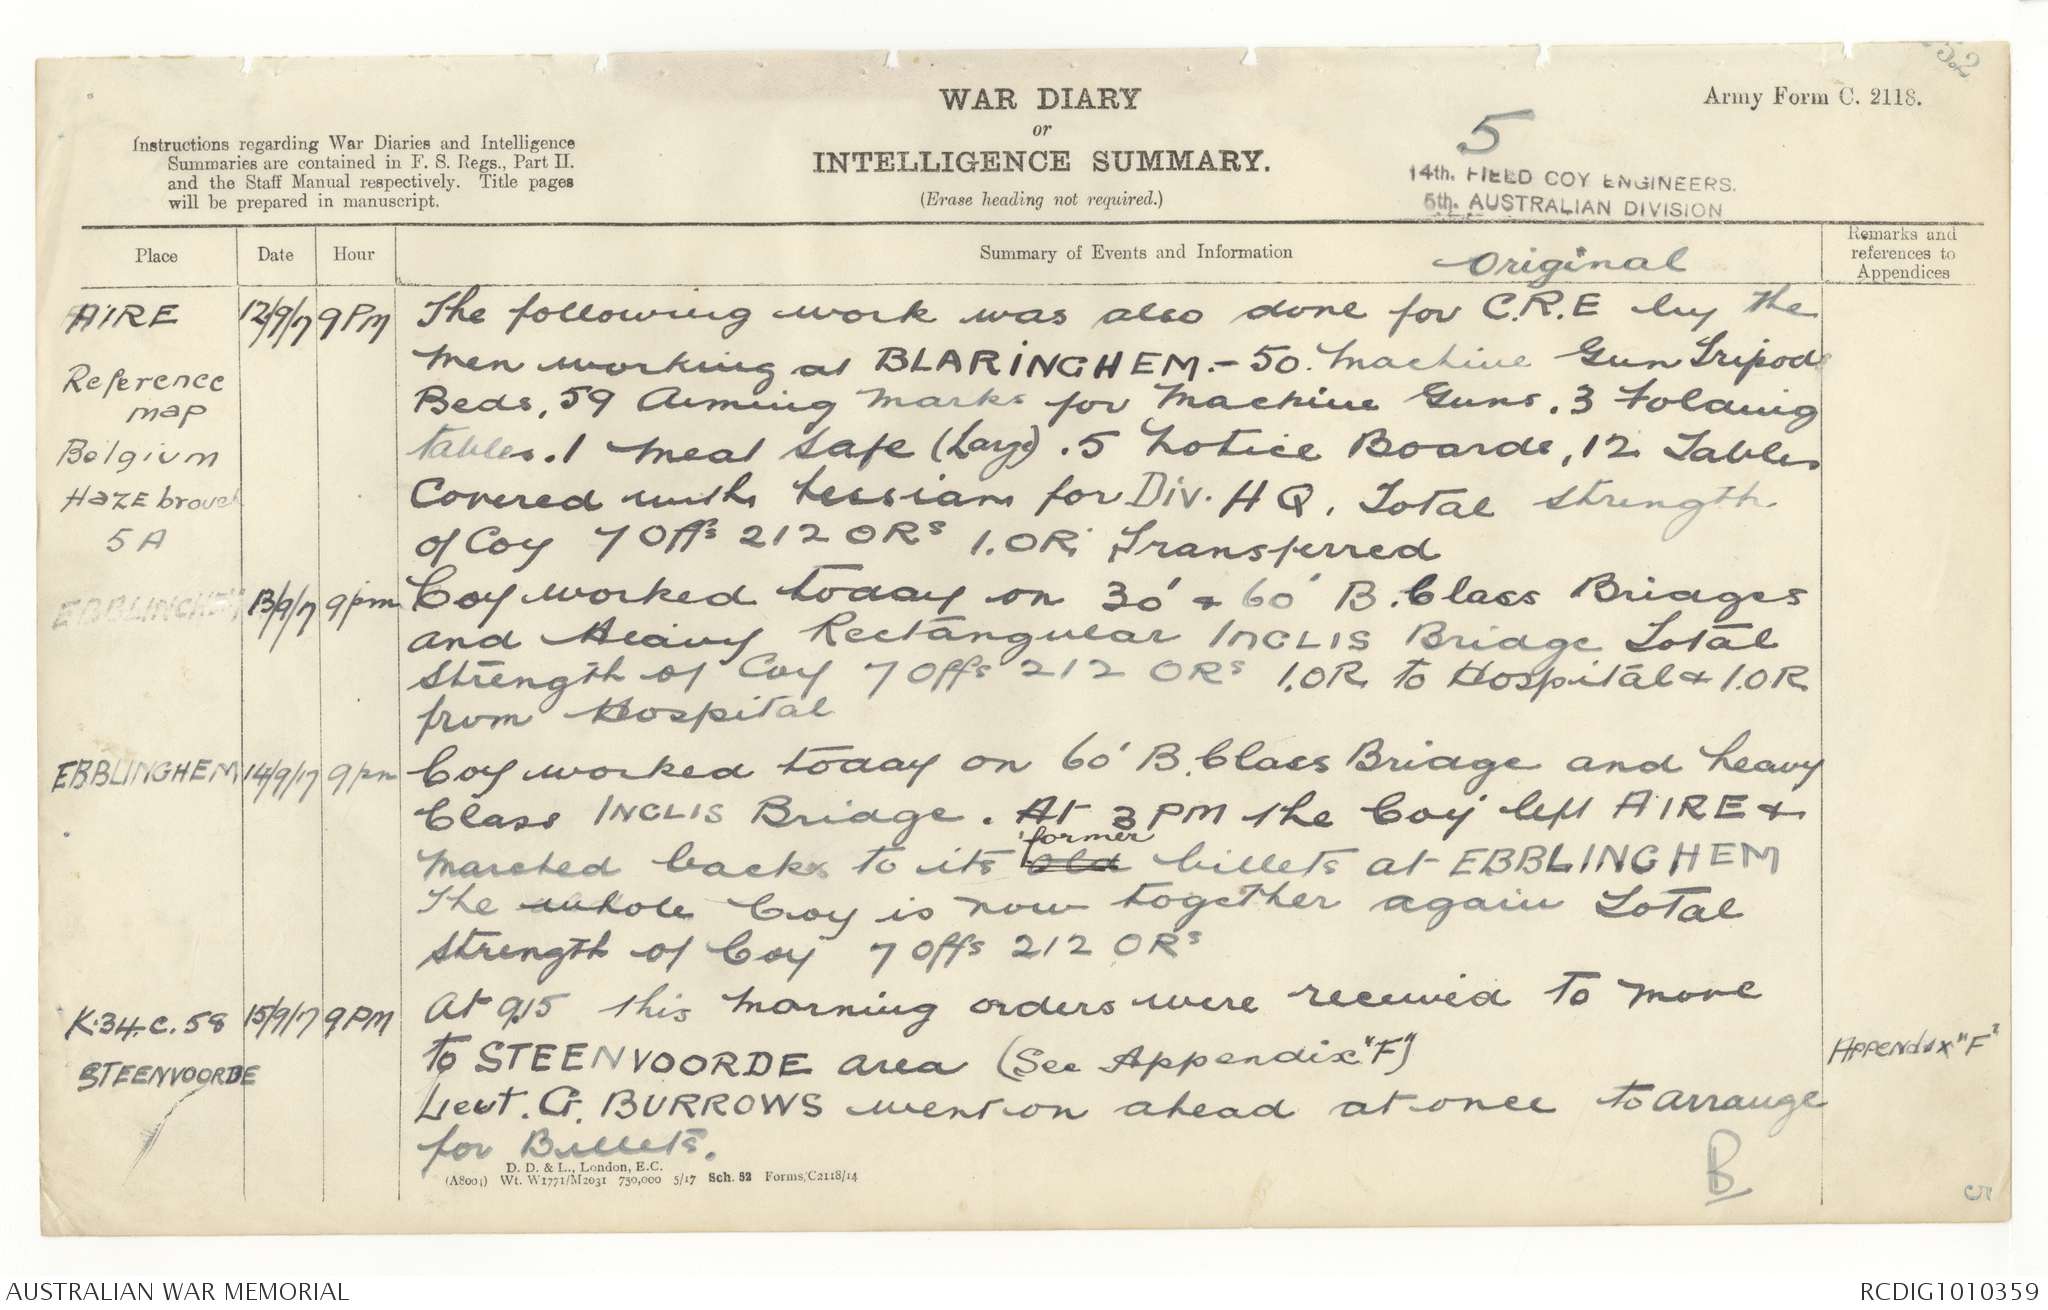 52
Army Form C. 2118.
WAR DIARY
or
INTELLIGENCE SUMMARY.
(Erase heading not required.)
Instructions regarding War Diaries and Intelligence
Summaries are contained in F. S. Regs., Part II.
and the Staff Manual respectively. Title pages
will be prepared in manuscript.
5
14th. FIELD COY ENGINEERS.
5th. AUSTRALIAN DIVISION
Place Date Hour Summary of Events and Information Remarks and references to Appendices
Original
AIRE 12/9/17 9PM The following work was also done for C.R.E by the
men working at BLARINGHEM.- 50. Machine Gun Tripod
Reference map
Beds, 59 Aiming Marks for Machine Guns. 3 Folding
Belgium
tables. 1 Meat Safe (Large). 5 Notice Boards, 12 Tables
Hazebrouck
Covered with hessian for Div. HQ. Total strength
5A
of Coy 7 Offs 212 ORs 1.OR. Transferred
EBBLINGHEM 13/9/17 9pm Coy worked today on 30' & 60' B. Class Bridges
and Heavy Rectangular INCLIS Bridge Total
strength of Coy 7 Offs 212 ORs 1.OR to Hospital & 1.OR
from Hospital
EBBLINGHEM 14/9/17 9pm Coy worked today on 60' B. Class Bridge and heavy
Class INCLIS Bridge. At 3 PM the Coy left AIRE &
marched back to its old former billets at EBBLINGHEM
The whole Coy is now together again Total
strength of Coy 7 Offs 212 ORs
K.34.c.58 15/9/17 9PM At 9.15 this morning orders were received to move
STEENVOORDE to STEENVOORDE area (See Appendix "F") Appendix "F"
Lieut. G. BURROWS went on ahead at once to arrange
for Billets.
B
5
D. D. & L., London, E.C.
(A8004) Wt. W1771/M2031 750,000 5/17 Sch. 52 Forms/C2118/14
AUSTRALIAN WAR MEMORIAL
RCDIG1010359